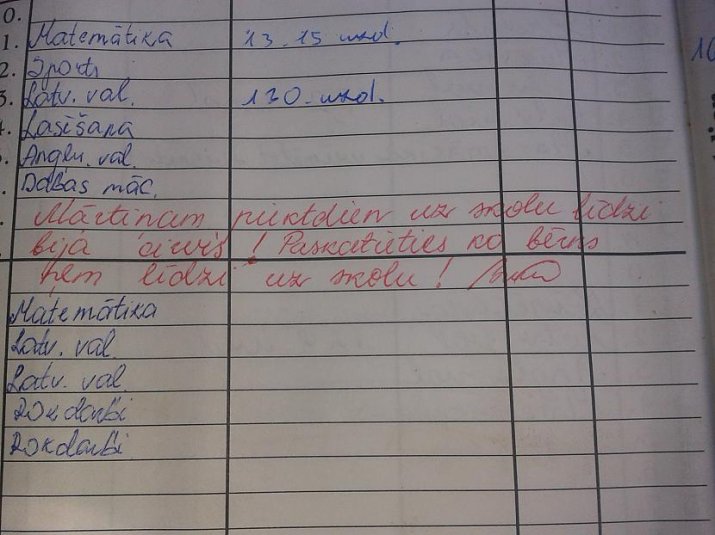 0.
1. Matemātika 13. 15 uzd.
2. Sports
3. Latv. val. 130. uzd.
Lasīšana
Angļu. val.
Dabas māc.
Mārtiņam piektdien uz skolu līdzi
bija cirvis! Paskatieties ko bērns
ņem līdzi uz skolu!
Matemātika
Latv. val.
Latv. val.
Rokdarbi
Rokdarbi
10